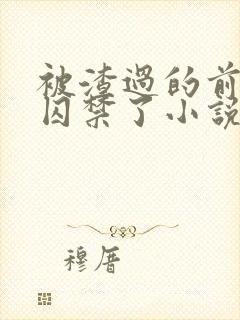 被渣過的前
囚禁了小說
穆厝